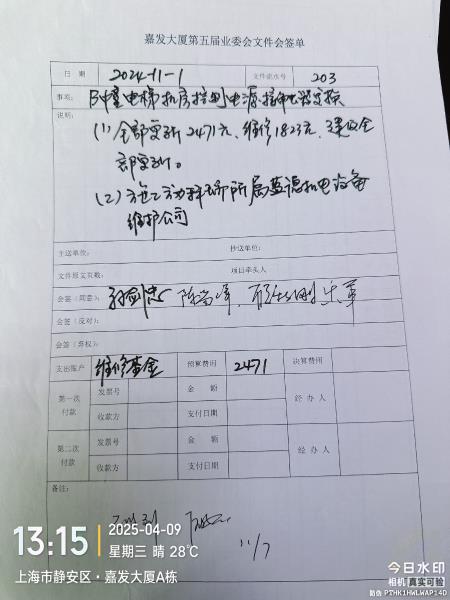 嘉发大厦第五届业委会文件会签单
日 期 2024-11-1 文件流水号 203
事项： B#客电梯机房控制电源、接触器更换
说明：
(1) 全部更新2471元、维修1823元，建议全
部更新。
(2) 施工方为 所属蓝讯机电设备
维护公司
主送单位： 抄送单位：
文件报文页数： 项目牵头人
会签（同意）：
会签（反对）：
会签（弃权）：
支出账户 维修基金 预算费用 2471 决算费用
第一次付款 发票号 金 额 经 办 人
收款方 支付日期
第二次付款 发票号 金 额 经 办 人
收款方 支付日期
备注：
11/7
13:15 2025-04-09
星期三 晴 28℃
上海市静安区·嘉发大厦A栋
今日水印
相机 真实可验
防伪 PTHK1HWLWAP14D